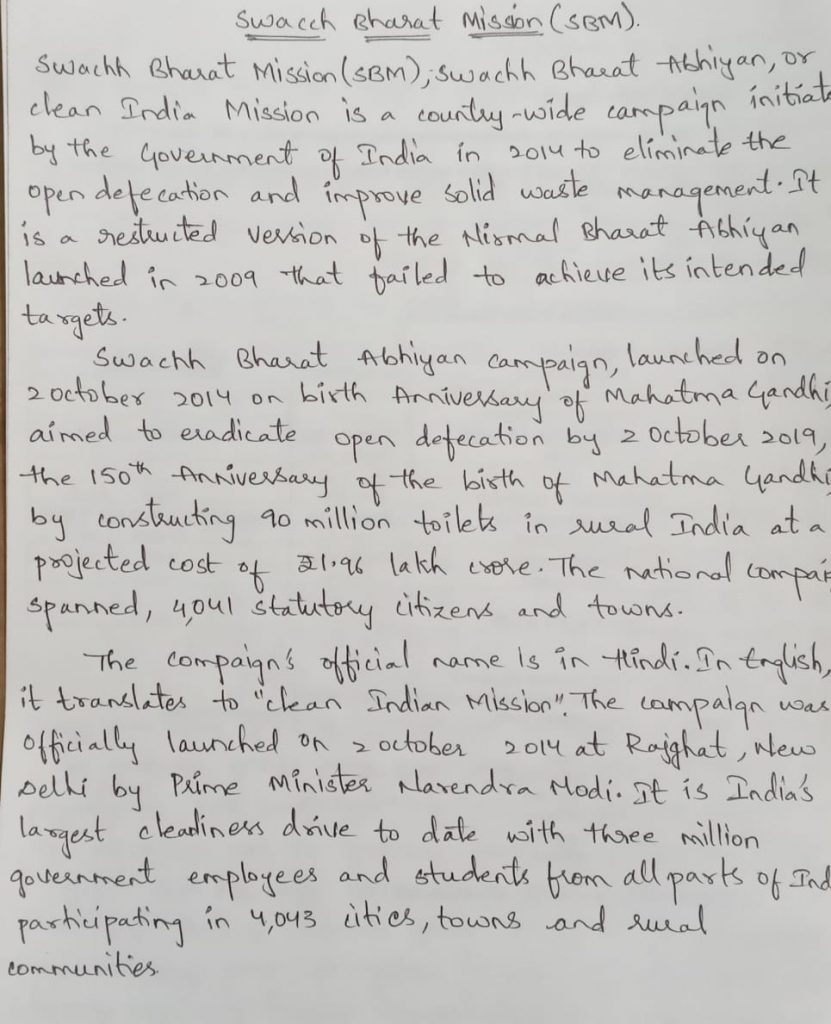 Swacch Bharat Mission (SBM).
Swachh Bharat Mission (SBM), Swachh Bharat Abhiyan, or
clean India Mission is a country-wide campaign initiate
by the Government of India in 2014 to eliminate the
open defecation and improve solid waste management. It
is a restructed version of the Nirmal Bharat Abhiyan
launched in 2009 that failed to achieve its intended
targets.
Swachh Bharat Abhiyan campaign, launched on
2 october 2014 on birth Anniversary of Mahatma Gandhi,
aimed to eradicate open defecation by 2 October 2019,
the 150th Anniversary of the birth of Mahatma Gandhi
by constructing 90 million toilets in rural India at a
projected cost of ₹1.96 lakh crore. The national compai
spanned, 4,041 statutory citizens and towns.
The compaign's official name is in Hindi. In English,
it translates to "clean Indian Mission". The campaign was
officially launched on 2 october 2014 at Rajghat, New
Delhi by Prime Minister Narendra Modi. It is India's
largest cleadiness drive to date with three million
government employees and students from all parts of Ind
participating in 4,043 cities, towns and rural
communities.